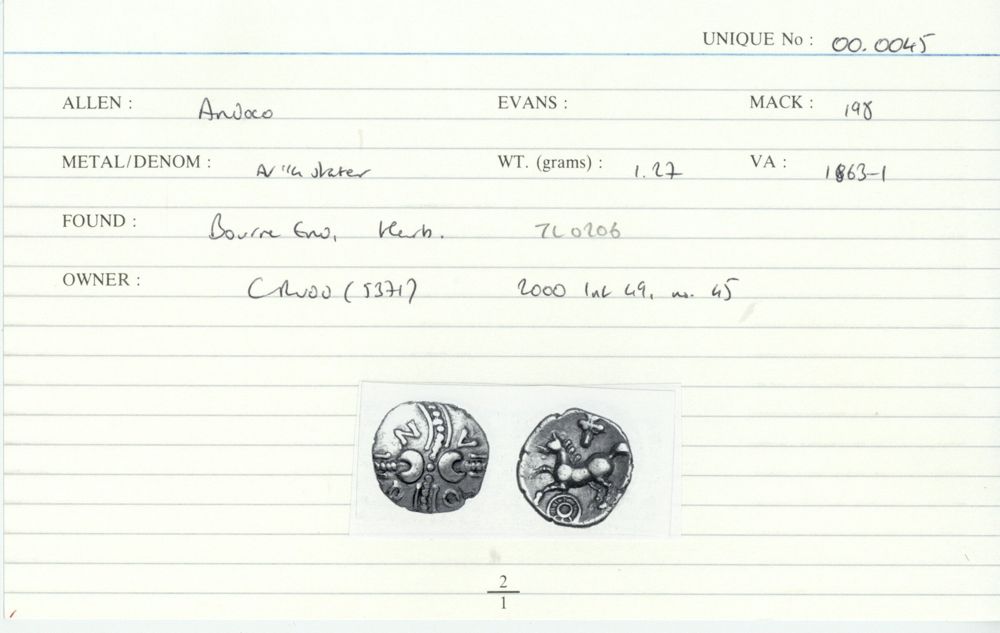 UNIQUE No : 00.0045
ALLEN : Andoco EVANS : MACK : 198
METAL/DENOM : AV ¼ stater WT. (grams) : 1.27 VA : 1863-1
FOUND : Bourne End, Herts. TL0206
OWNER : CRUDD (5371) 2000 Ink 49, no. 45
2
1